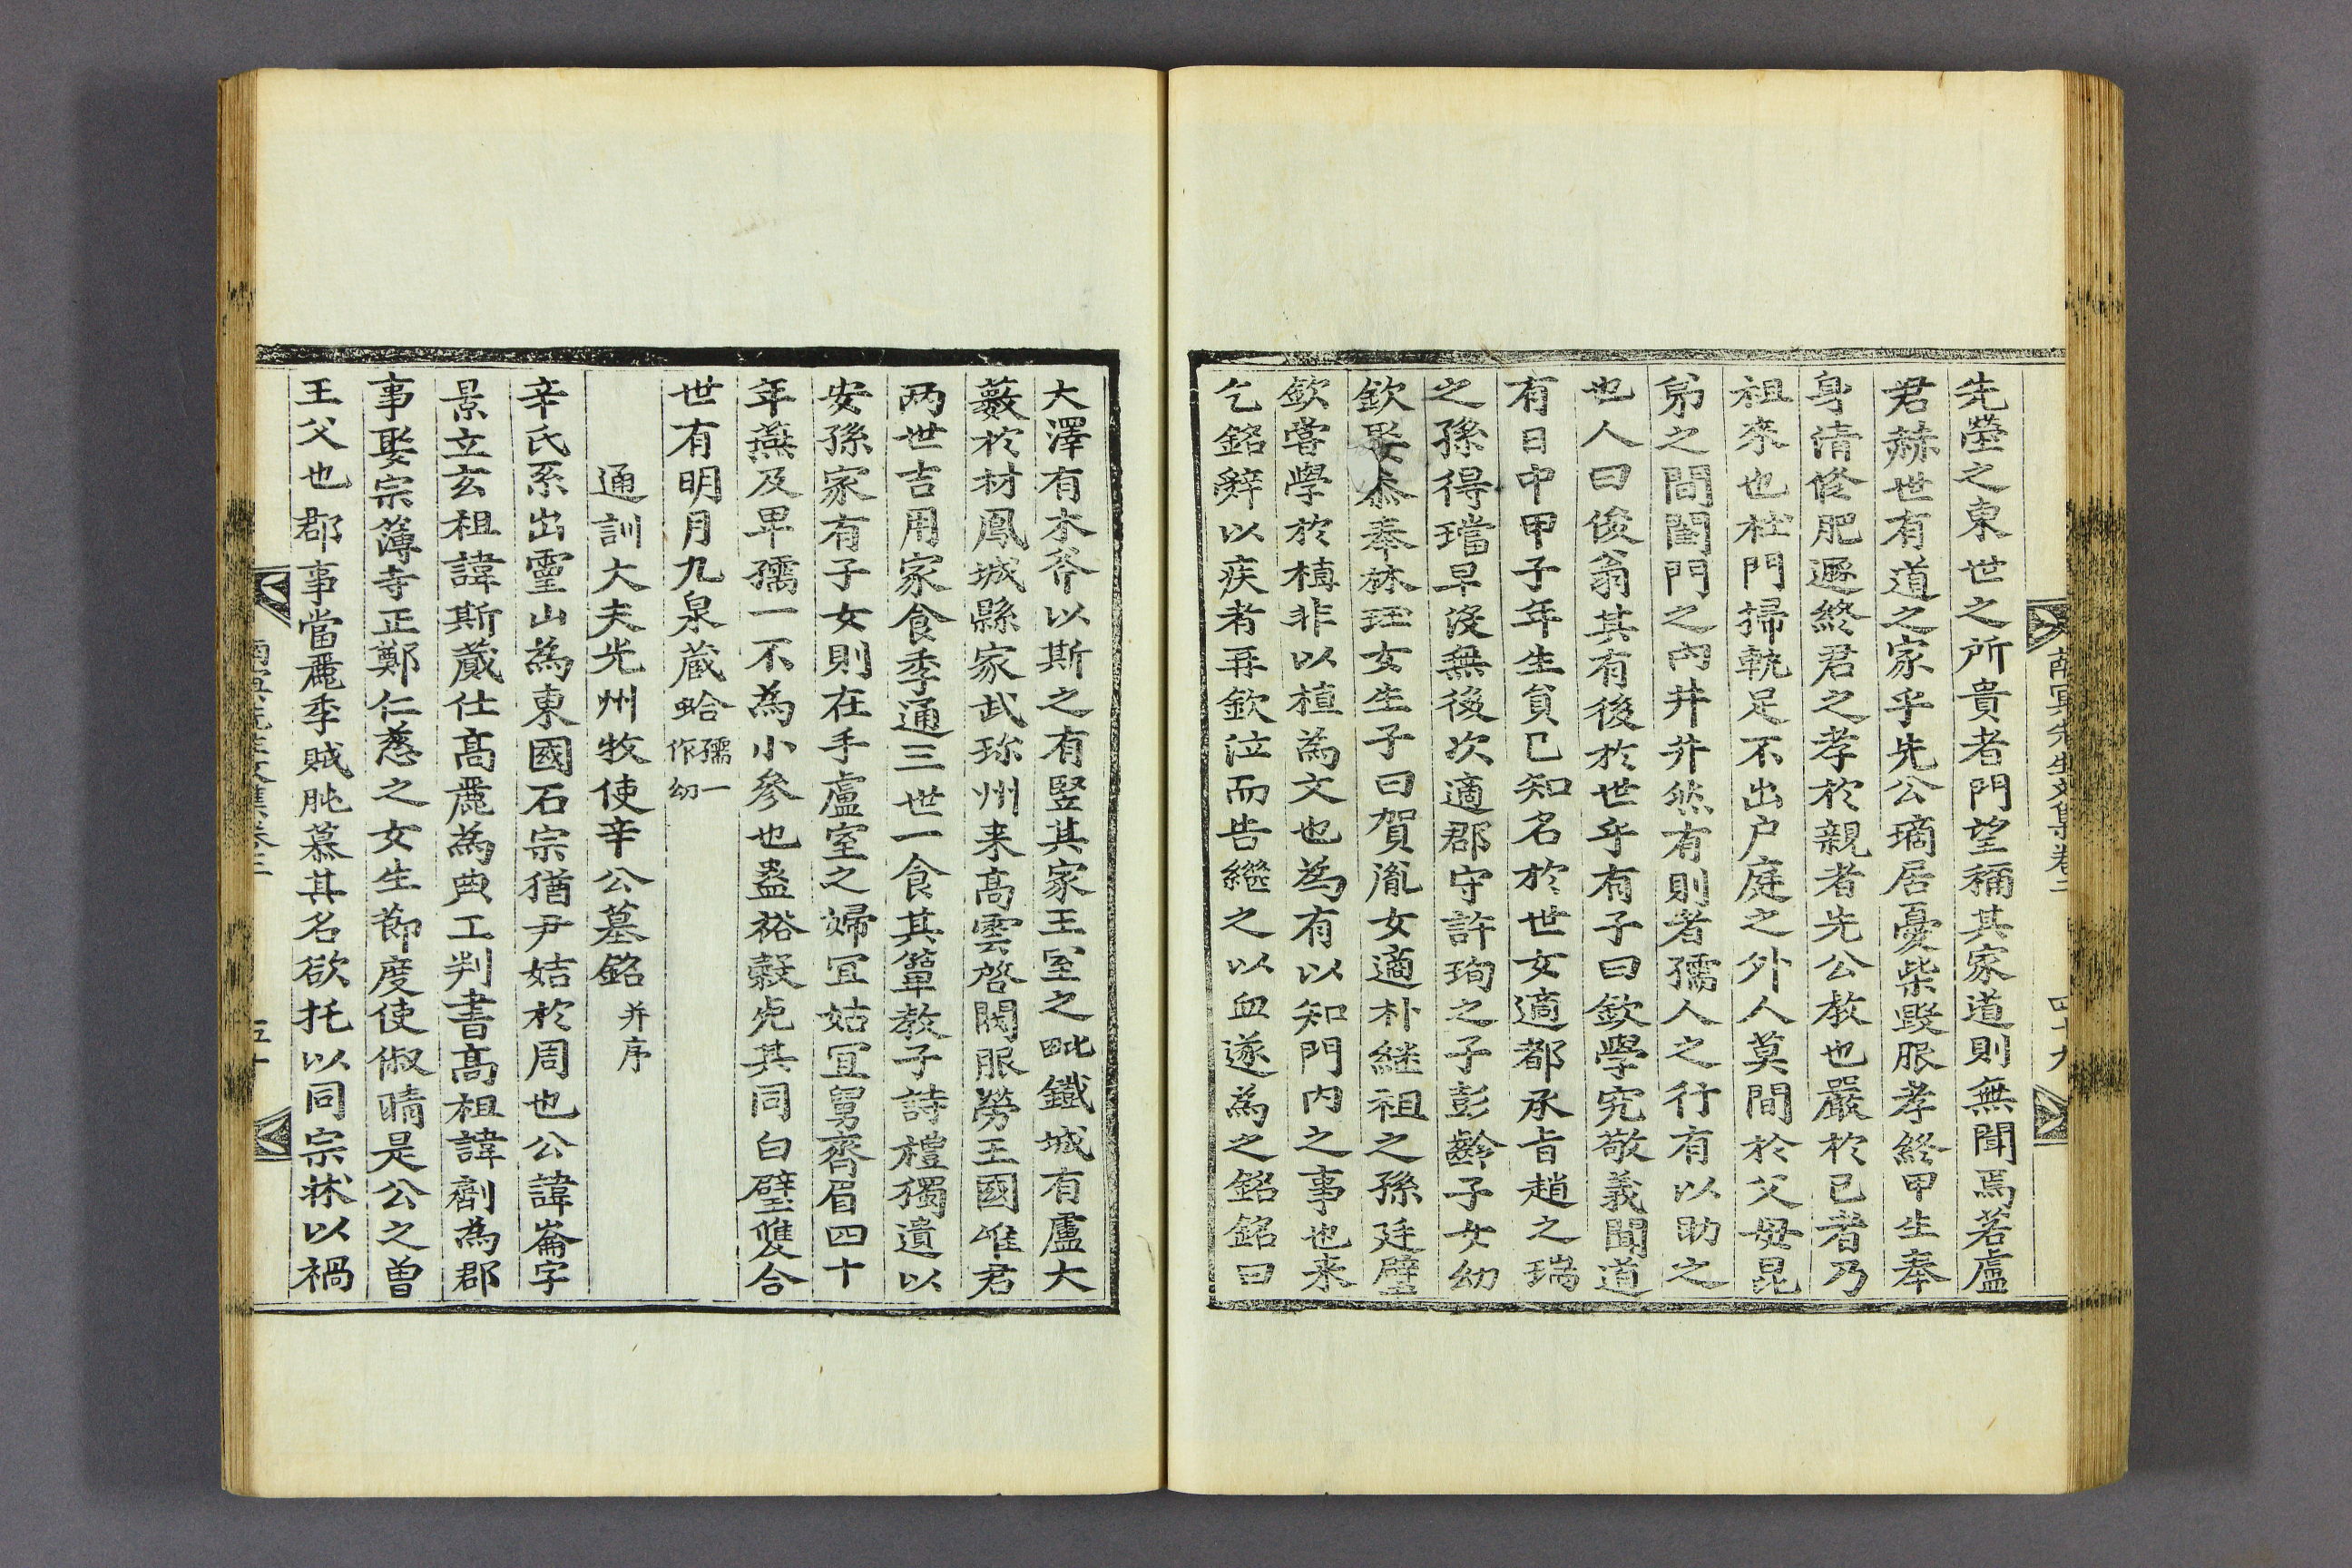 南冥先生文集卷二 四十九
先塋之東世之所貴者門望稱其家道則無聞焉若盧
君赫世有道之家乎先公瑀居憂柴毀服孝終甲生奉
身清修肥遯終君之孝於親者先公教也嚴於己者乃
祖來也杜門掃軌足不出户庭之外人莫間於父母昆
弟之間閨門之內井井然有則者孺人之行有以助之
也人曰俊翁其有後於世乎有子曰欽學究敬義聞道
有日中甲子年生貟已知名於世女適都承旨趙之瑞
之孫得璫早沒無後次適郡守許珣之子彭齡子女幼
欽娶叅奉林珏女生子曰賀胤女適朴継祖之孫廷璧
欽嘗學於植非以植為文也為有以知門內之事也来
乞銘辭以疾者再欽泣而告繼之以血遂為之銘銘曰
大澤有木斧以斯之有竪其家王室之毗鐵城有盧大
藪於材鳳城縣家武珎州来高雲啓閥服勞王國唯君
两世吉用家食季通三世一食其簞教子詩禮獨遺以
安孫家有子女則在手盧室之婦冝姑冝舅齊眉四十
年燕及卑孺一不為小參也盎裕縠兜其同白璧雙合
世有明月九泉蔵蛤 孺一作幼
通訓大夫光州牧使辛公墓銘 并序
辛氏系出靈山為東國石宗猶尹姞於周也公諱崙字
景立玄祖諱斯蕆仕高麗為典工判書高祖諱劑為郡
事娶宗簿寺正鄭仁慈之女生節度使俶晴是公之曽
王父也郡事當麗季賊旽慕其名欲托以同宗怵以禍
南冥先生文集卷二 五十